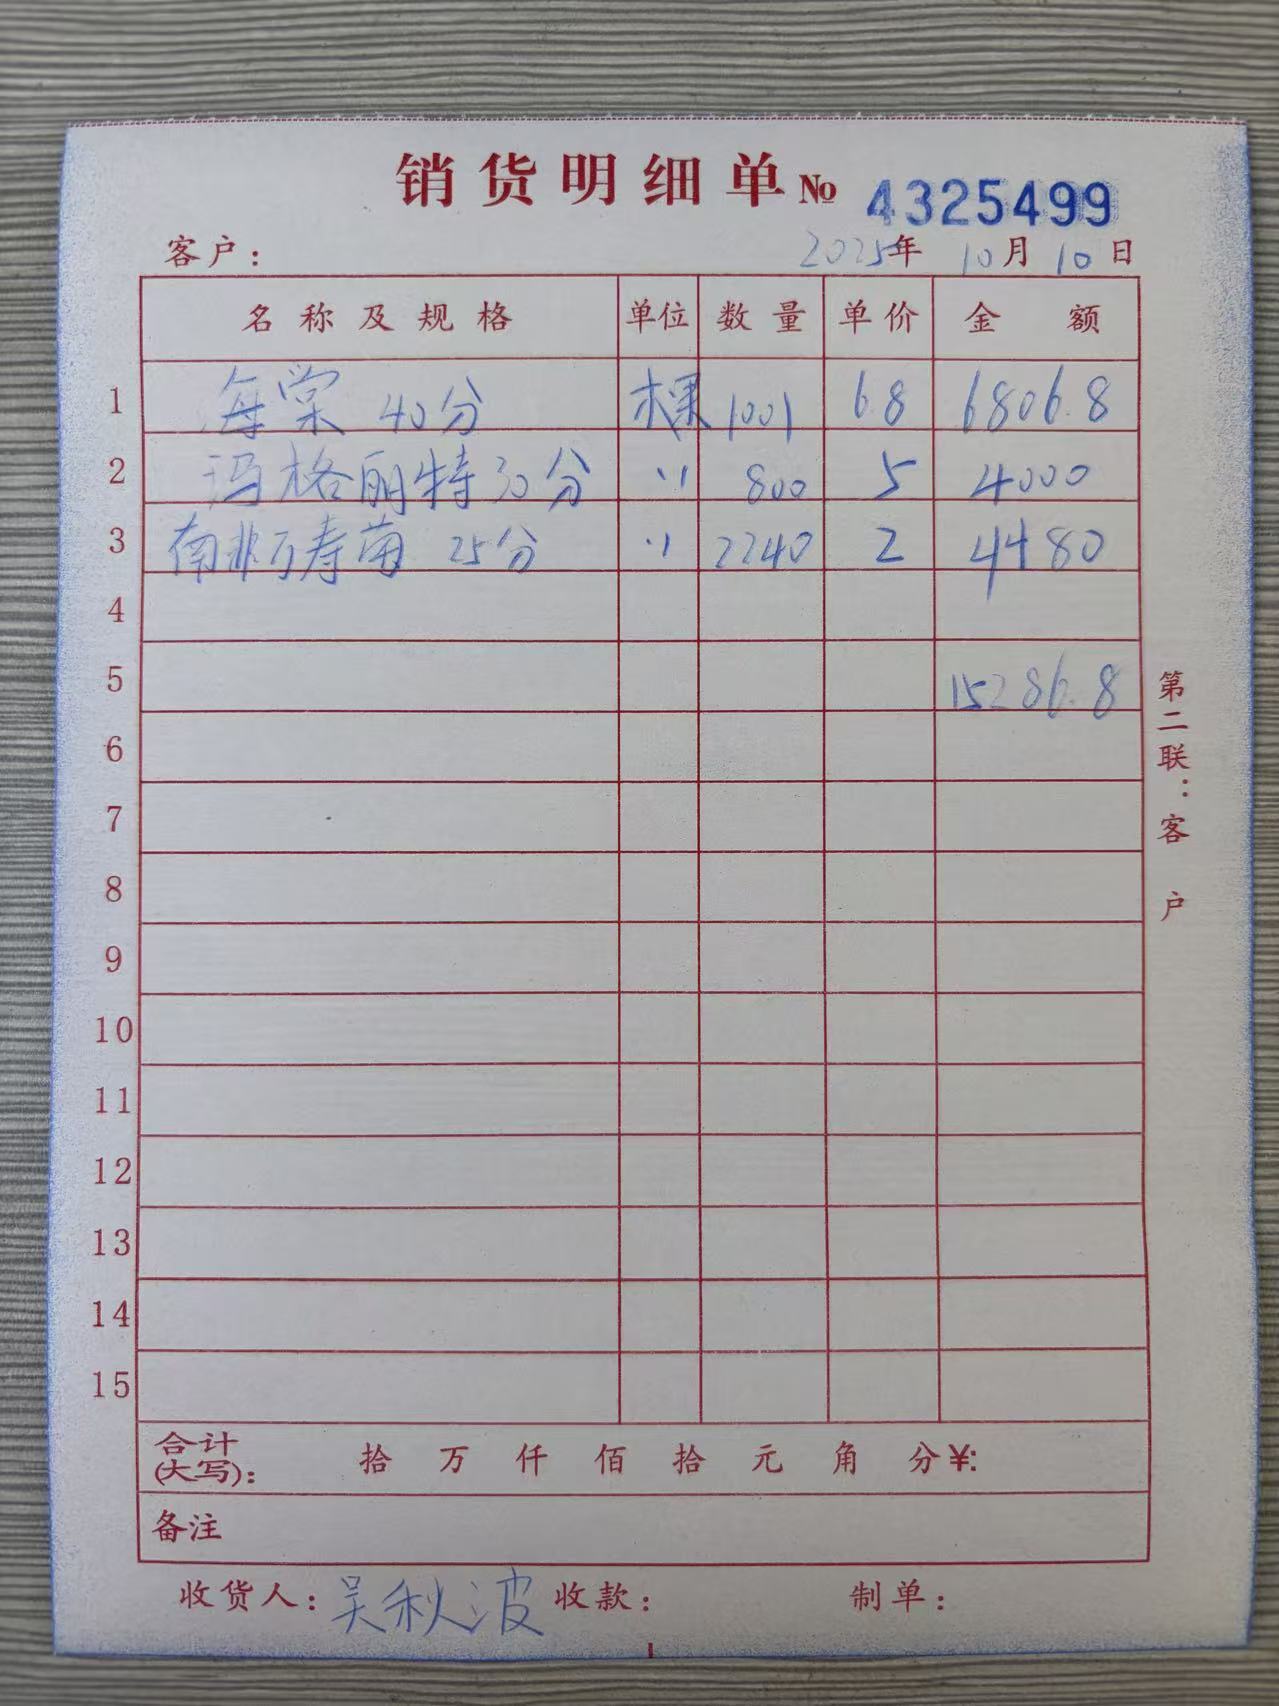 销货明细单 № 4325499
客户： 2025年 10月 10日
名称及规格 单位 数量 单价 金额
1 海棠 40分 棵 1001 6.8 6806.8
2 玛格丽特 30分 〃 800 5 4000
3 南非万寿菊 25分 〃 2240 2 4480
4
5 15286.8
6
7
8
9
10
11
12
13
14
15
合计(大写)： 拾 万 仟 佰 拾 元 角 分 ¥:
备注
收货人：吴秋波 收款： 制单：
第二联：客户